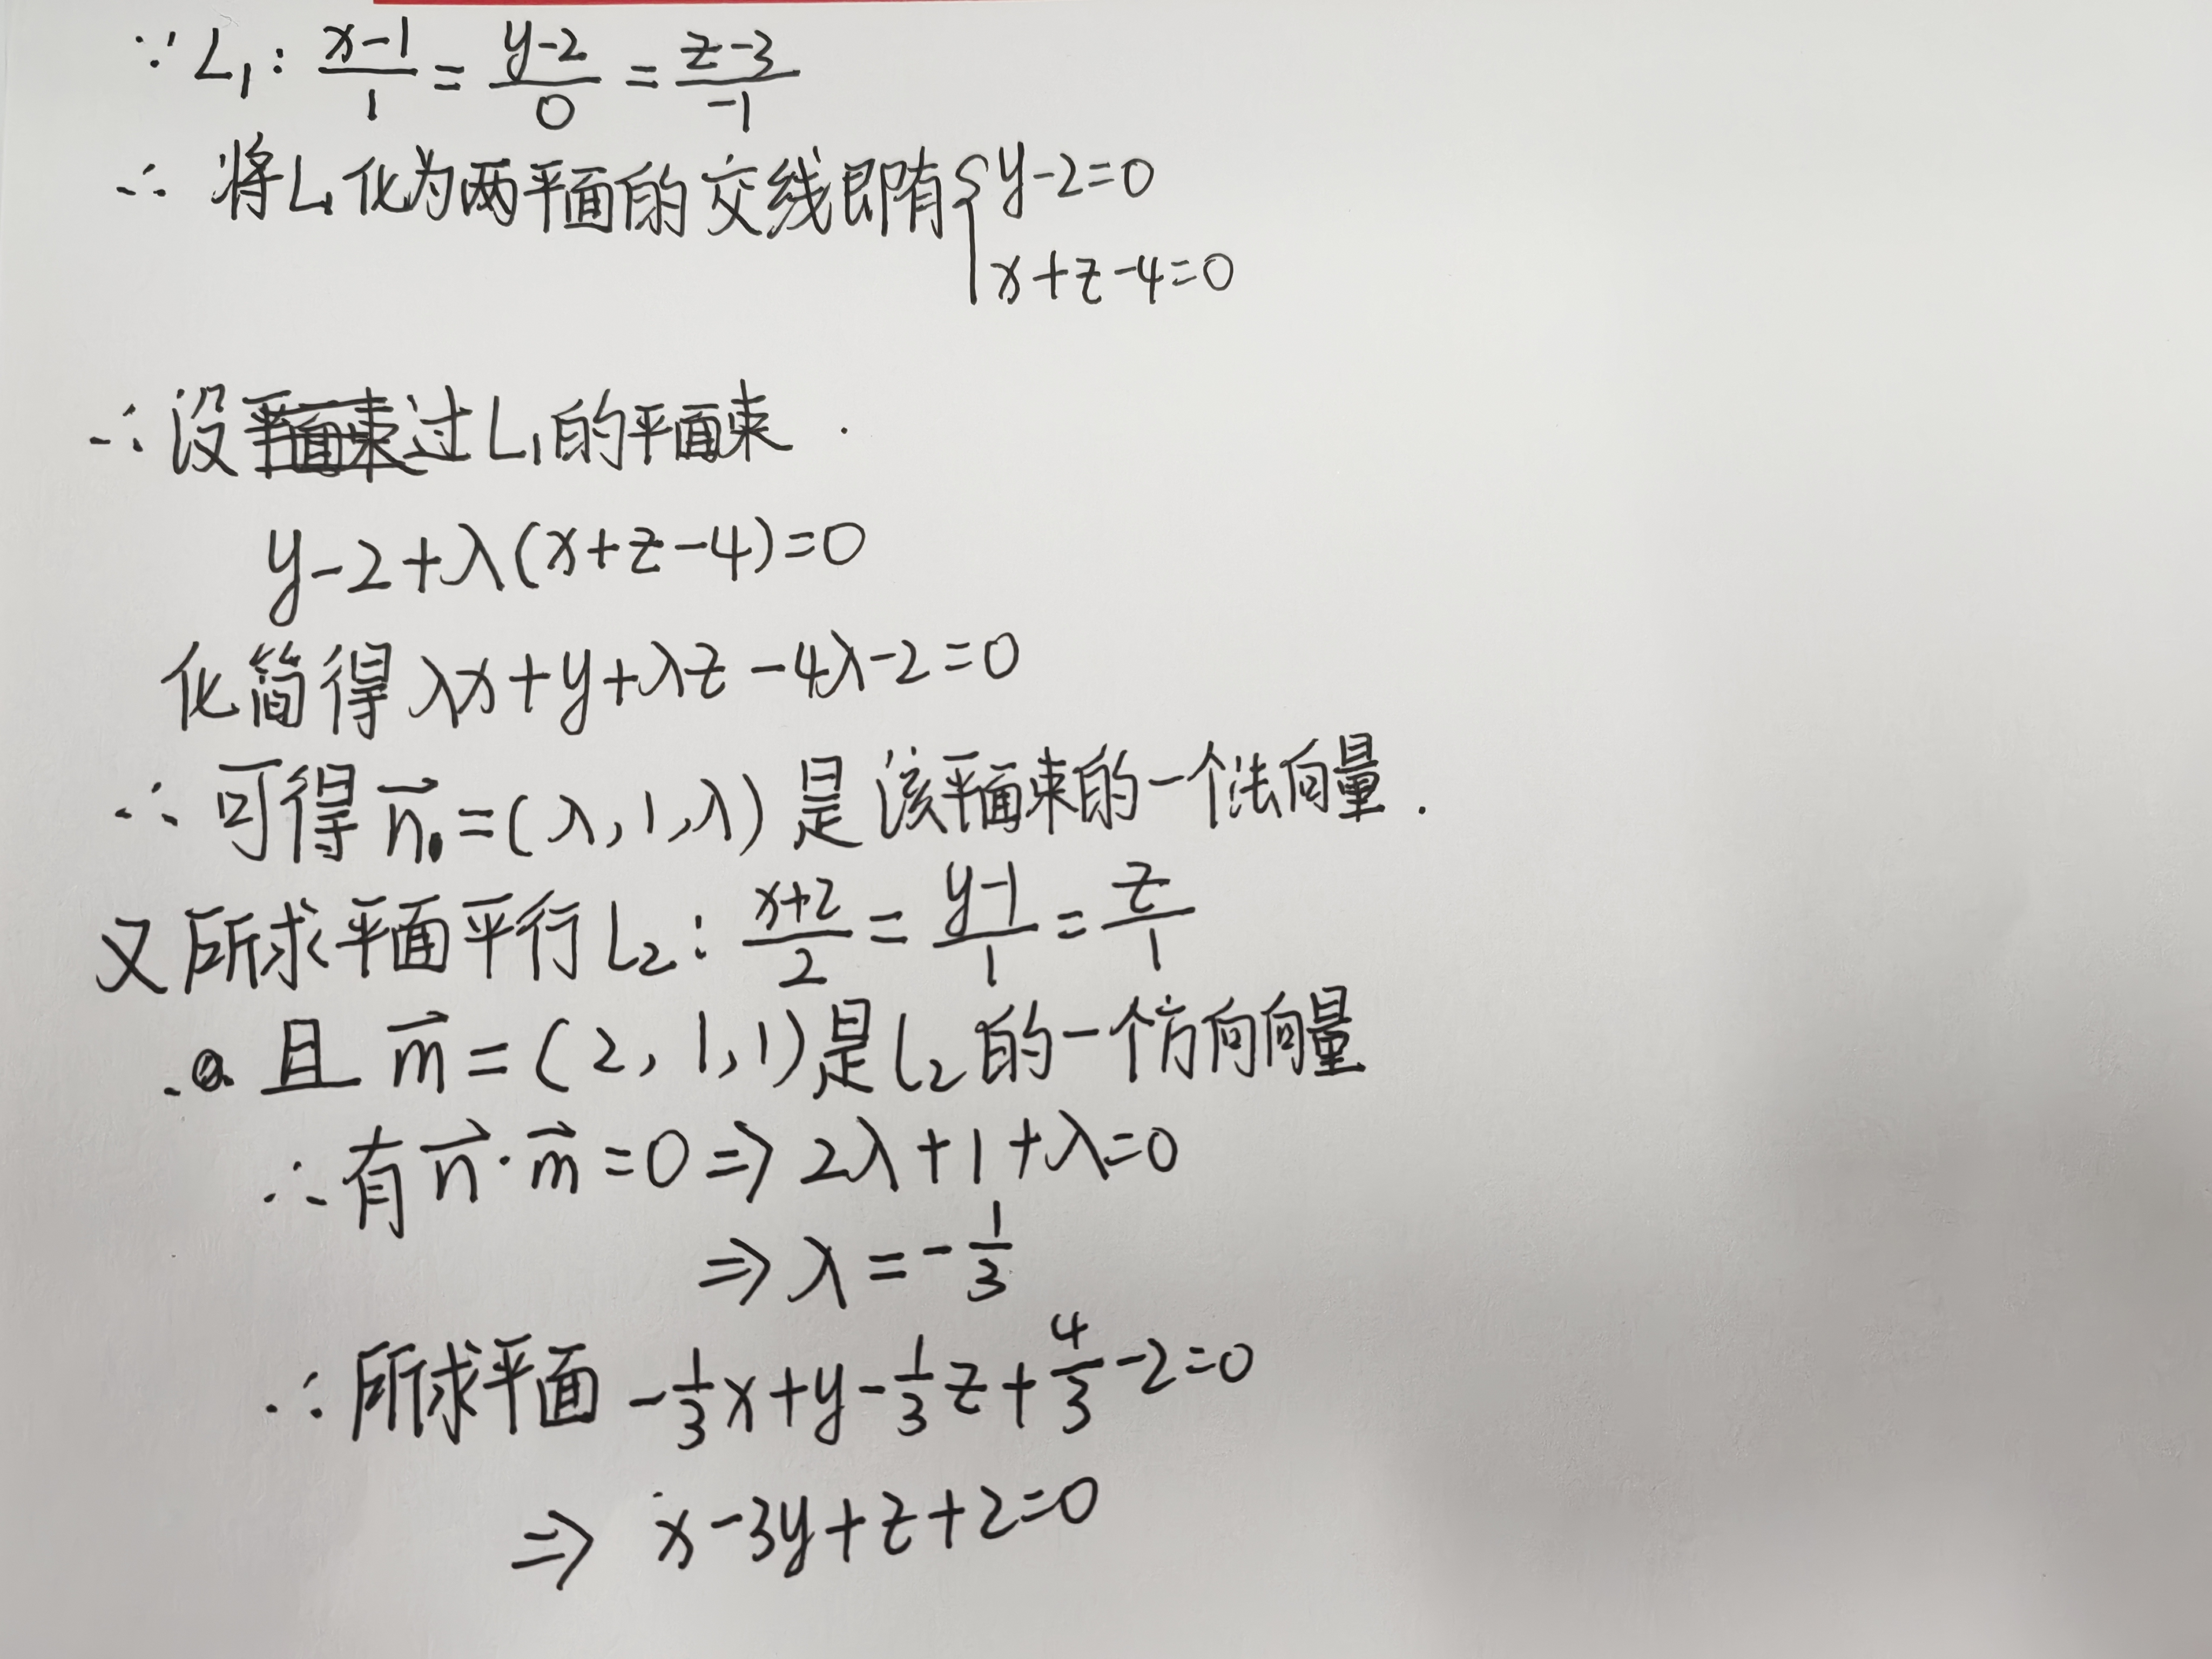 ∵ L₁: (x-1)/1 = (y-2)/0 = (z-3)/-1
∴ 将L₁化为两平面的交线即有 { y-2=0
x+z-4=0
∴ 设过L₁的平面束
y-2+λ(x+z-4)=0
化简得 λx+y+λz-4λ-2=0
∴ 可得 n⃗=(λ,1,λ) 是该平面束的一个法向量.
又所求平面平行 L₂: (x+2)/2 = (y-1)/1 = z/1
且 m⃗=(2,1,1)是L₂的一个方向向量
∴有 n⃗·m⃗=0 ⇒ 2λ+1+λ=0
⇒ λ=-1/3
∴所求平面 -1/3x+y-1/3z+4/3-2=0
⇒ x-3y+z+2=0